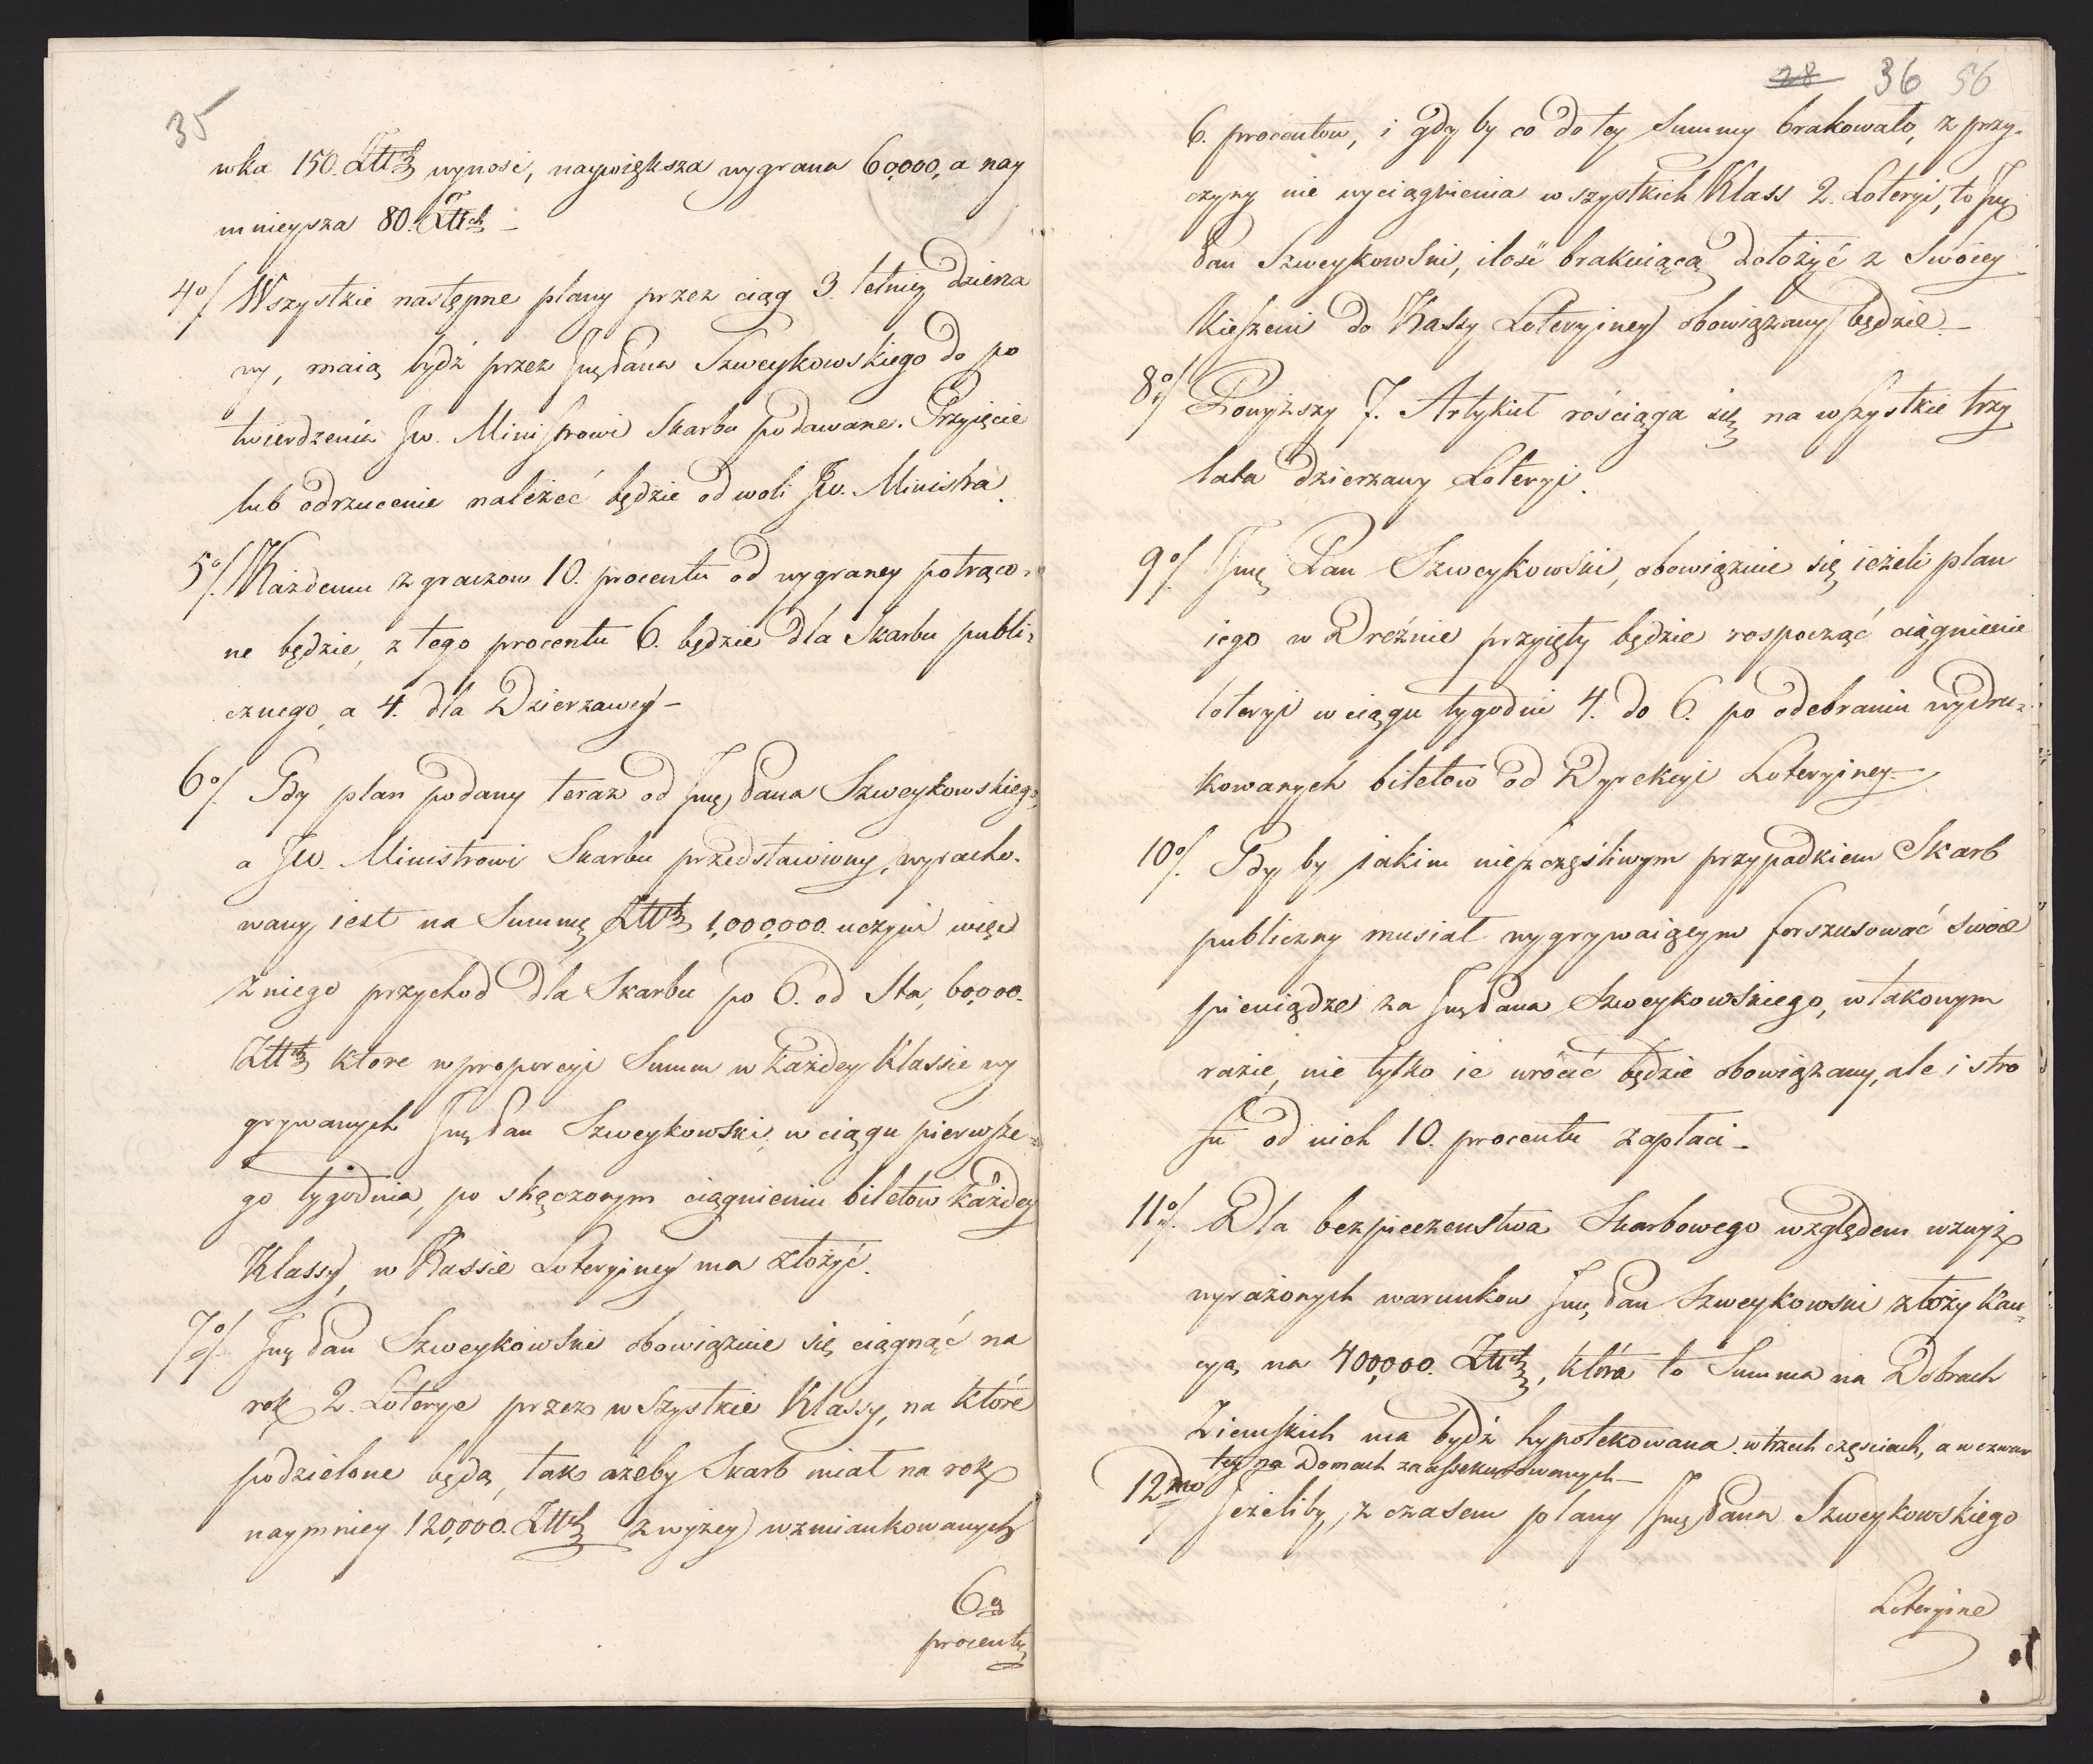 35
wka 150. Złłch wynosi, naywiększa wygrana 60,000, a nay
mnieysza 80. Złłch –
4o/. Wszystkie następne plany przez ciąg 3. letniey dzierza
wy, maią bydź przez Jmę Pana Szweykowskiego do po
twierdzenia Jw. Ministrowi Skarbu podawane. Przyięcie
lub odrzucenie należeć będzie od woli Jw. Ministra.
5o/. Każdemu z graczow 10. procentu od wygraney potrąco-
ne będzie, z tego procentu 6. będzie dla Skarbu publi-
cznego, a 4. dla Dzierzawcy –
6o/. Gdy plan podany teraz od Jmę Pana Szweykowskiego,
a Jw. Ministrowi Skarbu przedstawiony, wyracho-
wany iest na Summę Złłch 1,000,000. uczyni więc
z niego przychod dla Skarbu po 6. od sta, 60,000.
Złłch ktore w proporcyi Summ w każdey Klassie wy
grywanych Jmę Pan Szweykowski, w ciągu pierwsze-
go tygodnia, po skączonym ciągnieniu biletow każdey
Klassy, w Kassie Loteryiney ma złożyć.
7o/. Jmę Pan Szweykowski obowiązuie się ciągnąć na
rok 2. Loterye przez wszystkie Klassy, na które
podzielone będą, tak ażeby Skarb miał na rok
naymniey 120,000. Złłch z wyżey wzmiankowanych
6u
procentu
28 36 56
6. procentow, i gdy by co do tey Summy brakowało, z przy-
czyny nie wyciągnienia wszystkich Klass 2. Loteryi, to Jmę
Pan Szweykowski, ilość brakuiącą dołożyć z Swoiey
kieszeni do Kassy Loteryiney obowiązany będzie –
8o/. Powyższy 7. Artykuł rościąga się na wszystkie trzy
lata dzierzawy Loteryi.
9o/. Jmę Pan Szweykowski, obowiązuie się ieżeli plan
iego w Dreźnie przyięty będzie rospocząć ciągnienie
loteryi w ciągu tygodni 4. do 6. po odebraniu wydru-
kowanych biletow od Dyrekcyi Loteryiney –
10o/. Gdy by iakim nieszczęśliwym przypadkiem Skarb
publiczny musiał wygrywaiącym forszusować swoie
pieniądze za Jmę Pana Szweykowskiego, w takowym
razie, nie tylko ie wrócić będzie obowiązany, ale i stro
fu od nich 10. procentu zapłaci –
11o/. Dla bezpieczenstwa Skarbowego względem wzwyż
wyrażonych warunkow Jmę Pan Szweykowski złoży kau-
cyą na 400,000. Złłch, która to Summa na Dobrach
Ziemskich ma bydź hypotekowana w trzech częściach, a w czwar
tey na Domach zaassekurowanych –
12mo Jeżeliby, z czasem plany Jmę Pana Szweykowskiego
Loteryine